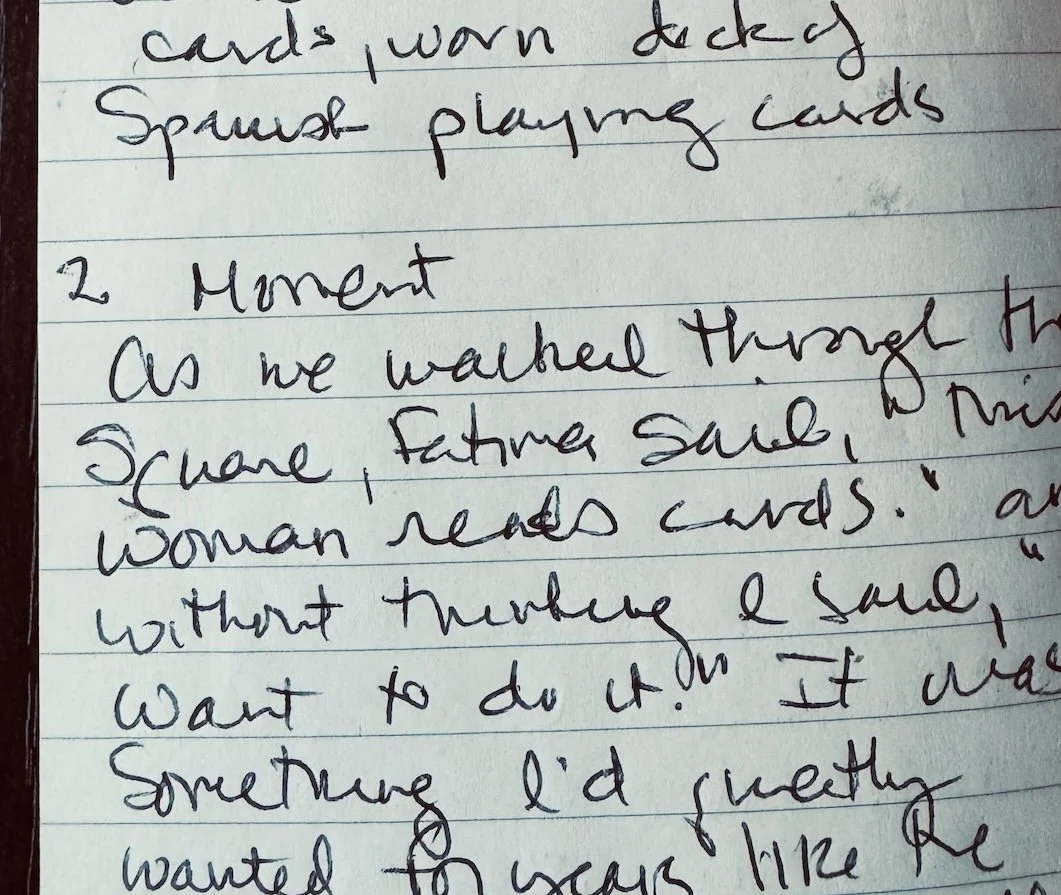 cards, worn deck of
Spanish playing cards
2 Moment
As we walked through th
Square, Fatima said, "This
woman reads cards." an
without thinking I said, "
Want to do it!" It was
Something I'd quietly
wanted for years like the